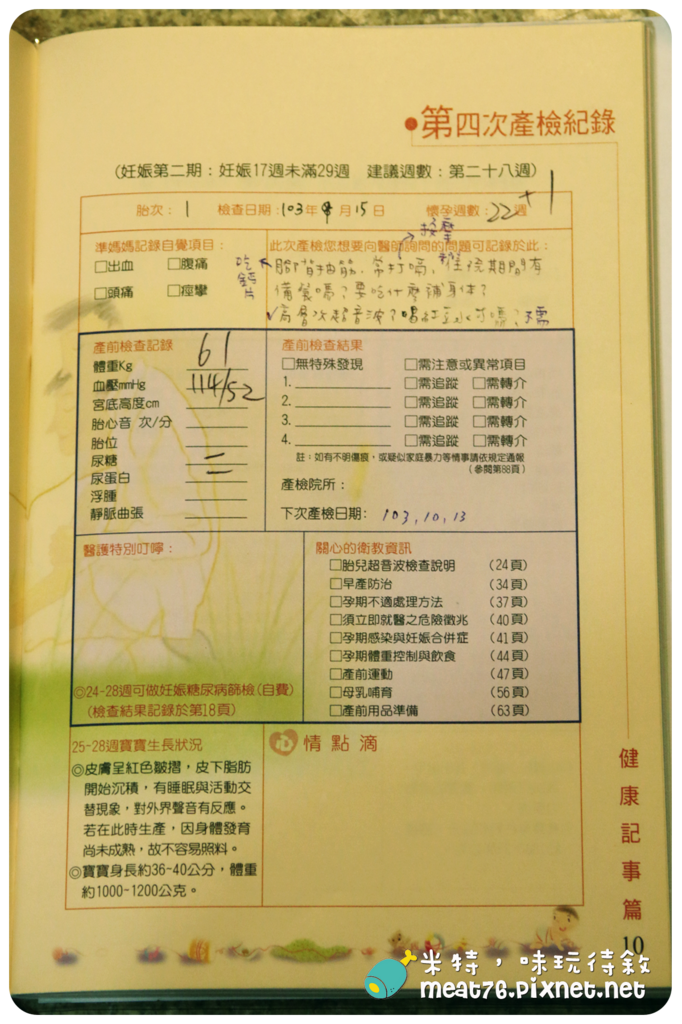 第四次產檢紀錄
(妊娠第二期：妊娠17週未滿29週 建議週數：第二十八週)
胎次：1 檢查日期：103年9月15日 懷孕週數：22週+1
準媽媽記錄自覺項目：
□出血 □腹痛
□頭痛 □痙攣
此次產檢您想要向醫師詢問的問題可記錄於此：
按摩
吃鈣片
腳背抽筋、常打嗝，住院期間有
備餐嗎？要吃什麼補身体？
✓高層次超音波？喝紅豆水可嗎？
產前檢查記錄
體重Kg 61
血壓mmHg 114/52
宮底高度cm
胎心音 次/分
胎位
尿糖 —
尿蛋白 —
浮腫
靜脈曲張
產前檢查結果
□無特殊發現 □需注意或異常項目
1. □需追蹤 □需轉介
2. □需追蹤 □需轉介
3. □需追蹤 □需轉介
4. □需追蹤 □需轉介
註：如有不明傷痕，或疑似家庭暴力等情事請依規定通報
(參閱第88頁)
產檢院所：
下次產檢日期：103,10,13
醫護特別叮嚀：
◎24-28週可做妊娠糖尿病篩檢(自費)
(檢查結果記錄於第18頁)
關心的衛教資訊
□胎兒超音波檢查說明 (24頁)
□早產防治 (34頁)
□孕期不適處理方法 (37頁)
□須立即就醫之危險徵兆 (40頁)
□孕期感染與妊娠合併症 (41頁)
□孕期體重控制與飲食 (44頁)
□產前運動 (47頁)
□母乳哺育 (56頁)
□產前用品準備 (63頁)
25-28週寶寶生長狀況
◎皮膚呈紅色皺摺，皮下脂肪
開始沉積，有睡眠與活動交
替現象，對外界聲音有反應。
若在此時生產，因身體發育
尚未成熟，故不容易照料。
◎寶寶身長約36-40公分，體重
約1000-1200公克。
心情點滴
健康記事篇
10
米特，味玩待敘
meat76.pixnet.net